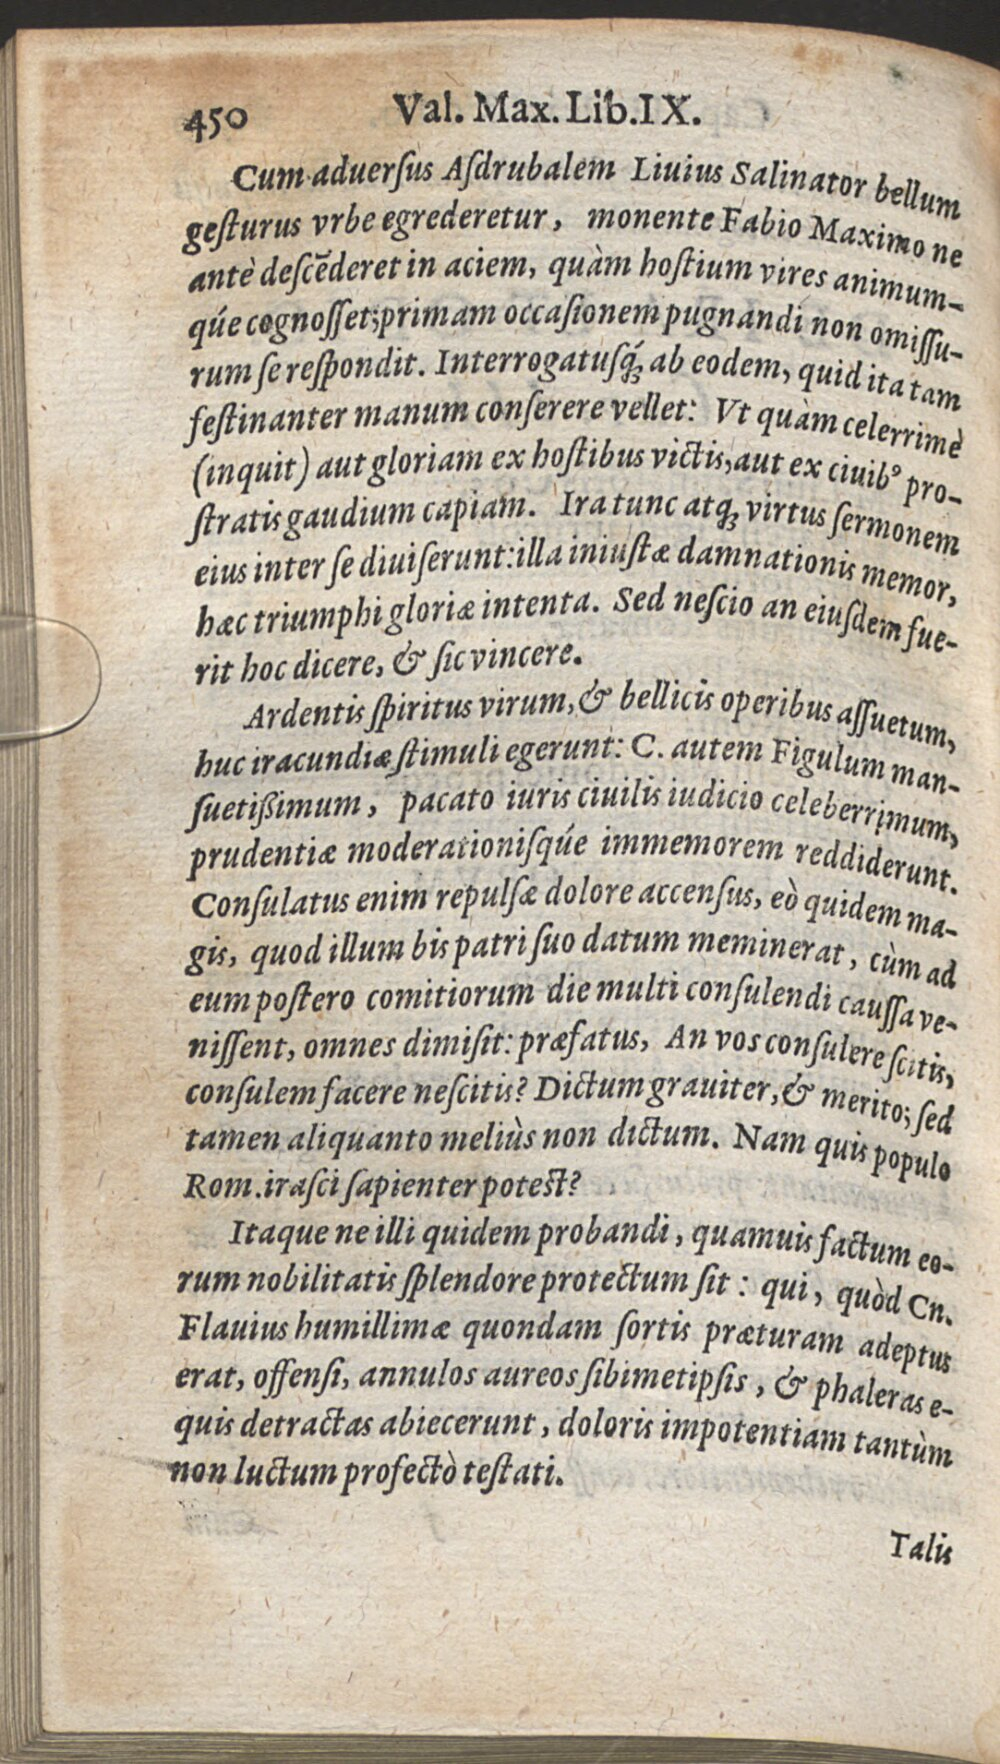 450 Val. Max. Lib. IX.
Cum aduerſus Aſdrubalem Liuius Salinator bellum
geſturus vrbe egrederetur, monente Fabio Maximo ne
antè deſcẽderet in aciem, quàm hoſtium vires animum-
qúe cognoſſet; primam occaſionem pugnandi non omiſſu-
rum ſe reſpondit. Interrogatuſq́; ab eodem, quid ita tam
feſtinanter manum conſerere vellet: Vt quàm celerrimè
(inquit) aut gloriam ex hoſtibus victis, aut ex ciuibꝰ pro-
ſtratis gaudium capiam. Ira tunc atq; virtus ſermonem
eius inter ſe diuiſerunt: illa iniuſtæ damnationis memor,
hæc triumphi gloriæ intenta. Sed neſcio an eiuſdem fue-
rit hoc dicere, & ſic vincere.
Ardentis ſpiritus virum, & bellicis operibus aſſuetum,
huc iracundiæ ſtimuli egerunt: C. autem Figulum man-
ſuetißimum, pacato iuris ciuilis iudicio celeberrimum,
prudentiæ moderationiſqúe immemorem reddiderunt.
Conſulatus enim repulſæ dolore accenſus, eò quidem ma-
gis, quod illum bis patri ſuo datum meminerat, cùm ad
eum poſtero comitiorum die multi conſulendi cauſſa ve-
niſſent, omnes dimiſit: præfatus, An vos conſulere ſcitis,
conſulem facere neſcitis? Dictum grauiter, & merito; ſed
tamen aliquanto meliùs non dictum. Nam quis populo
Rom. iraſci ſapienter poteſt?
Itaque ne illi quidem probandi, quamuis factum eo-
rum nobilitatis ſplendore protectum ſit: qui, quòd Cn.
Flauius humillimæ quondam ſortis præturam adeptus
erat, offenſi, annulos aureos ſibimetipſis, & phaleras e-
quis detractas abiecerunt, doloris impotentiam tantùm
non luctum profectò teſtati.
Talis